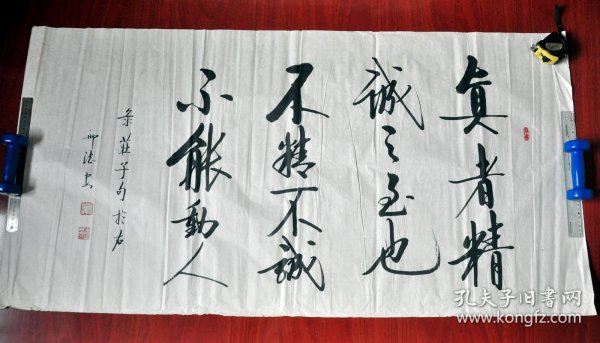 真者精
誠之至也
不精不誠
不能動人
莊子句於右
孔夫子旧书网
www.kongfz.com